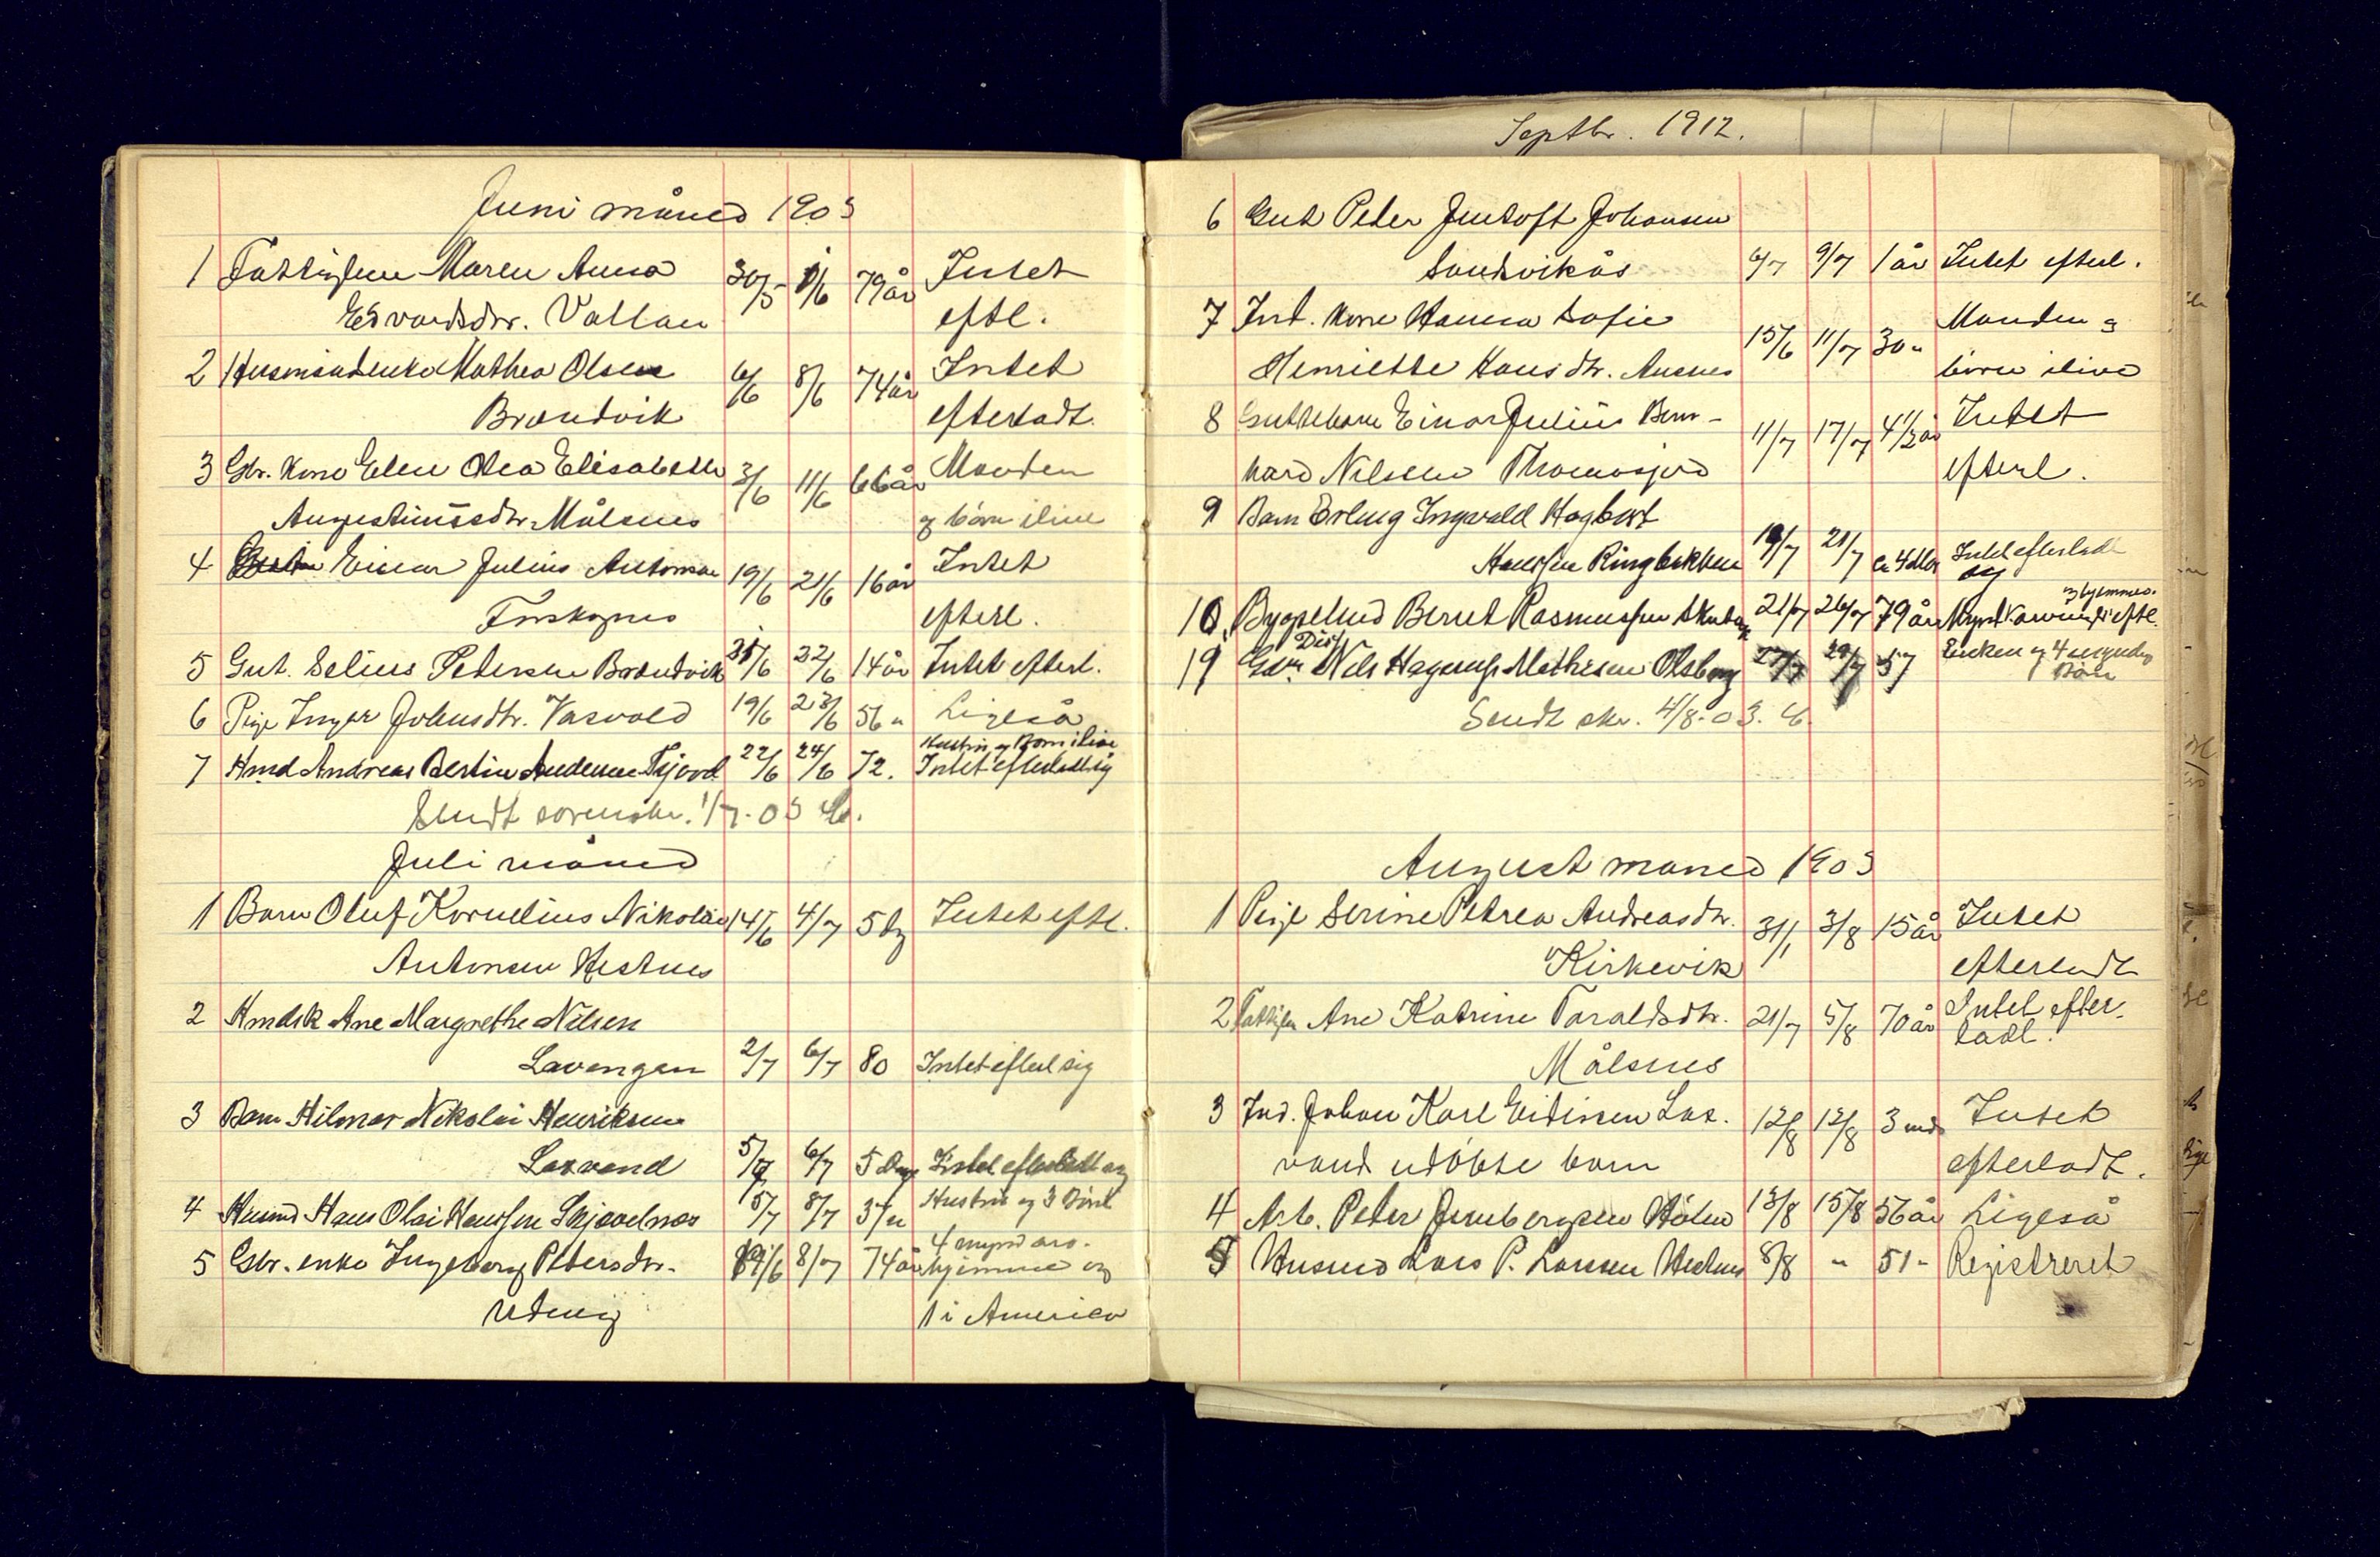 Juni måned 1903
1 Fattiglem Maren Anna 30/5 1/6 79 år Intet
Edvardsdtr. Vollan eftl.
2 Husmandenke Mathea Olsen 6/6 8/6 74 år Intet
Brændvik efterladt.
3 Gbr. Kone Elen Olea Elisabeth 3/6 11/6 66 år Manden
Augustinusdtr. Målsnes og børn ilive
4 Einar Julius Antonsen 19/6 21/6 16 år Intet
efterl.
5 Gut. Selius Pedersen Brændvik 21/6 22/6 14 år Intet efterl.
6 Pige Inger Johnsdtr. Vasvold 19/6 23/6 56 " Ligeså
Hustru og Børn ilive
7 Hmd Andreas Bertin Andersen 22/6 24/6 72. Intet efterladt sig
Sendt sorenskr. 1/7-03
Juli måned
1 Barn Oluf Kornelius Nikolai 14/6 4/7 5 dg Intet eftl.
Antonsen Hestnes
2 Hmdsk Ane Margrethe Nilsen
Lavangen 2/7 6/7 80 Intet efterl sig
3 Barn Hilmar Nikolai Henriksen
Laxvand 5/7 6/7 5 Dage Intet efterladt sig
4 Husmd Hans Olai Hanssen 5/7 8/7 37 " Hustru og 3 Børn
4 mynd arv.
5 Gbr. enke Ingeborg Petersdtr. 8/7 74 år hjemme og
1 i America
Septbr. 1912.
6 Gut Peter Jentoft Johansen
Sandvikås 6/7 9/7 1 år Intet efterl.
7 Ind. Kone Hanna Sofie 15/6 11/7 30 " Manden og
Henriette Hansdtr. Ansnes børn ilive
8 Guttebarn Einar Julius Bern- 11/7 17/7 4 1/2 år Intet
hard Nilsen Thomasjord efterl.
9 Barn Erling Ingvald Hagbart
Hanssen Ringbekken 19/7 21/7 Intet efterladt
sig
10. Bygselmd Bernt Rasmussen 21/7 26/7 79 år
19 Gbr. Nils Hagerup Mathisen Olsborg 27/7 29/7 57 Enken og 4 umyndig
Børn
Sendt skr. 4/8-03.
August maned 1903
1 Pige Serine Petrea Andreasdtr. 31/1 3/8 15 år Intet
Kirkevik efterladt
2 Fattiglem Ane Katrine Taraldsdtr. 21/7 5/8 70 år Intet efter-
Målsnes ladt.
3 Ind. Johan Karl Eidissen Lax- 12/8 12/8 3 mdr Intet
vand udöbte barn efterladt.
4 Arb. Peter Jensbergsen Hölen 13/8 15/8 56 år Ligeså
5 Husmd Lars P. Larssen 8/8 " 51 " Registreret